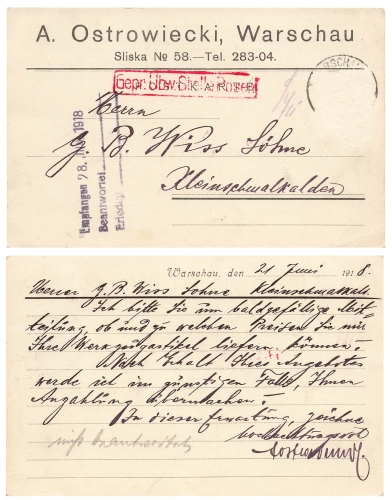 A. Ostrowiecki, Warschau
Sliska № 58.—Tel. 283-04.
WARSCHAU
Gepr. Üb.w.Stelle Posen
POSTKARTE
Herrn
G. B. Wiss Söhne
Kleinschmalkalden
Empfangen 28. 1918
Beantwortet
Erledigt
Warschau, den 21 Juni 1918.
G. B. Wiss Sohne Kleinschmalkald.
Ich bitte Sie um baldgefällige Mit-
teilung, ob und zu welchen Preisen Sie mir
Ihre Werkzeugartikel liefern können.
Nach Erhalt Ihres Angebotes
werde ich im günstigen Falle, Ihnen
Anzahlung übermachen.
In dieser Erwartung, zeichne
hochachtungsvoll
nicht beantwortet